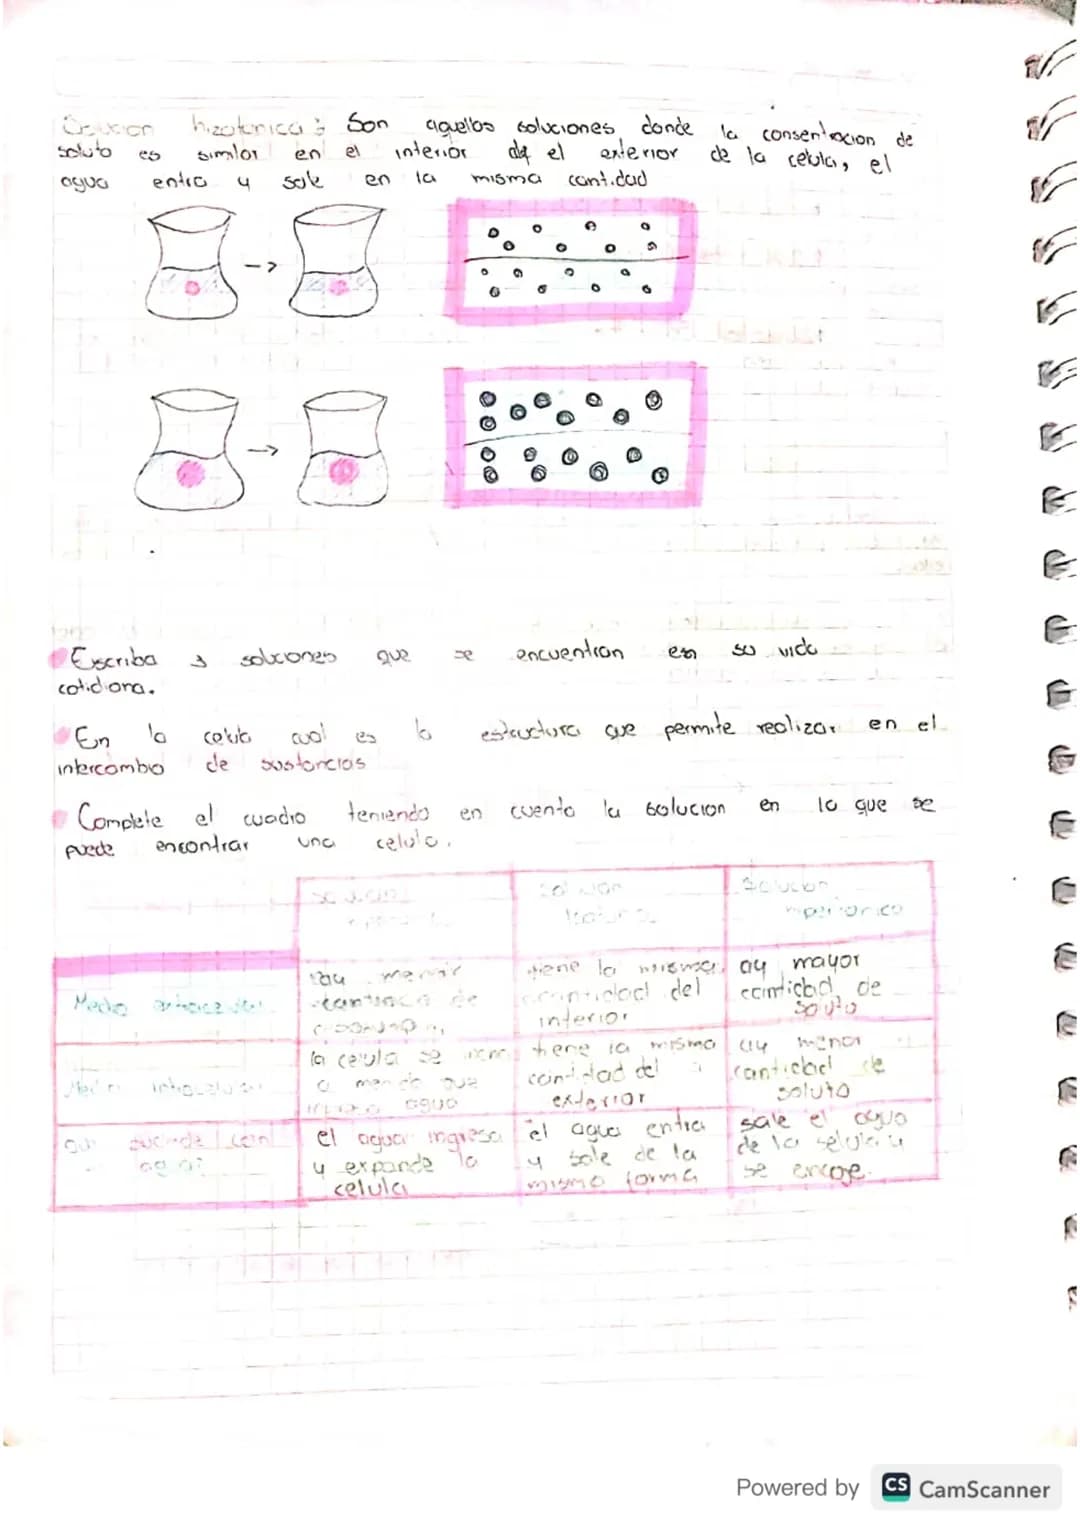 Solucion hizotonica: Son aquellas soluciones donde la consentracion de
soluto es similar en el interior del exterior de la celula, el
agua entra y sale en la misma cantidad
->
->
Escriba 3 soluciones que se encuentran en su vida
cotidiana.
En la celula cual es la estructura que permite realizar en el
intercambio de sustancias
Complete el cuadro teniendo en cuenta la solucion en la que se
puede encontrar una celula.
Solucion
Solucion
Solucion
Medio
ay menor
cantidad de
tiene la misma
cantidad del
interior
ay mayor
cantidad de
soluto
Medio
la celula se
agua
tiene la misma
cantidad del
exterior
ay menor
cantidad de
soluto
el agua ingresa
y expande la
celula
el agua entra
y sale de la
misma forma
sale el agua
de la selula y
se encoge.
Powered by CS CamScanner